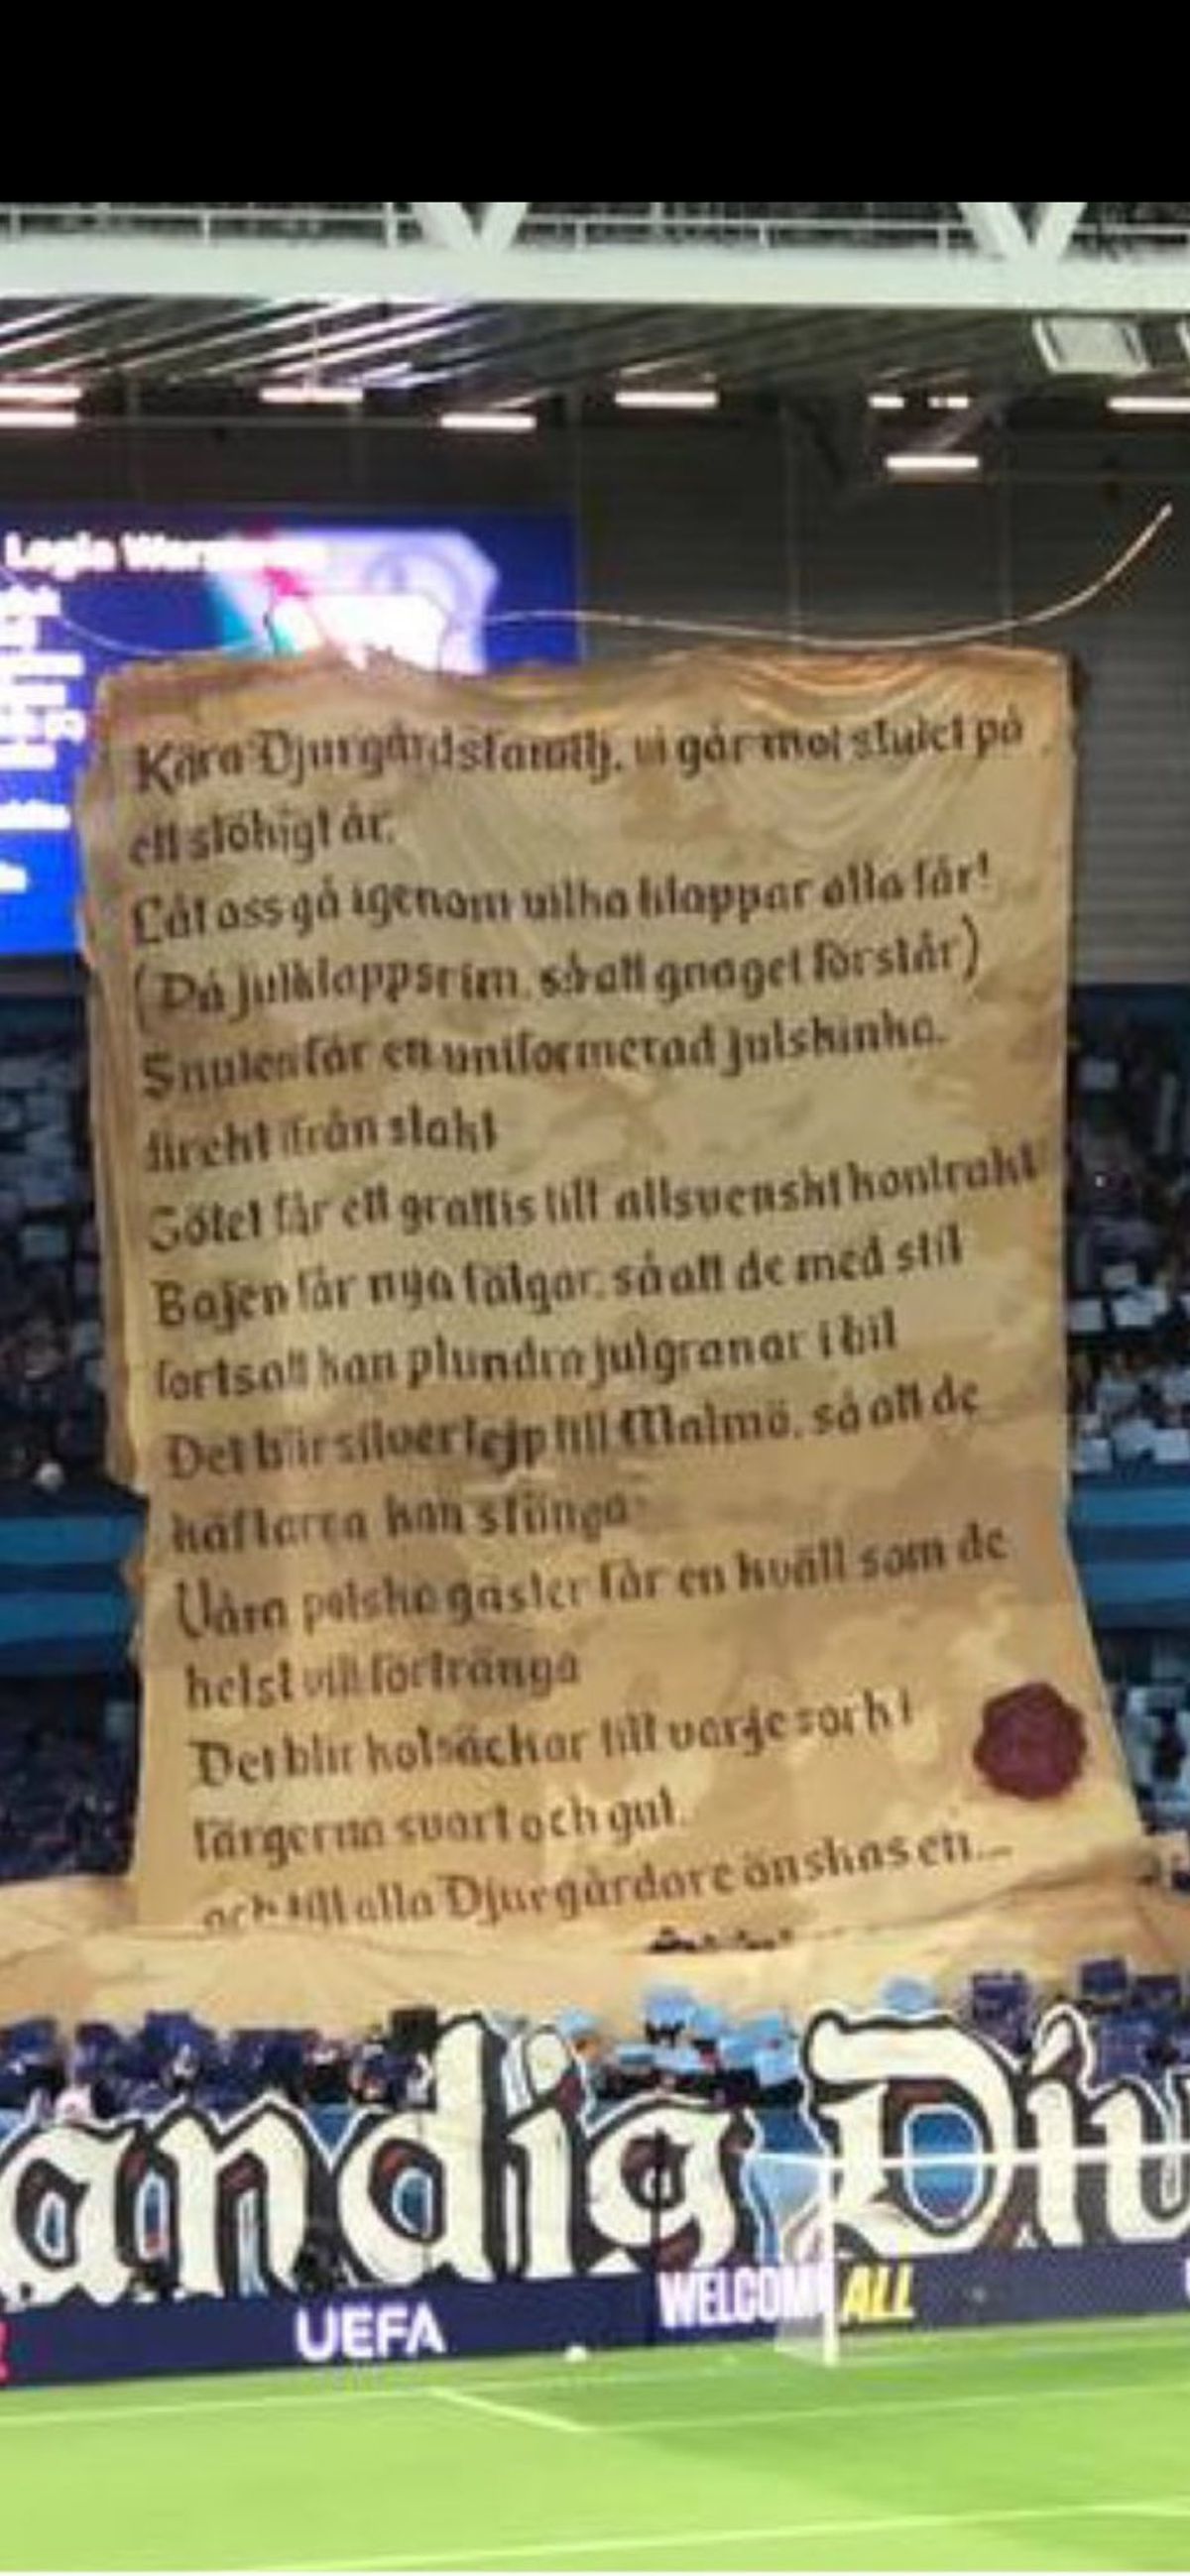 Legia Warszawa
Kära Djurgårdsfamilj, vi går mot slutet på
ett stökigt år.
Låt oss gå igenom vilka klappar alla får!
(På julklappsrim, så att gnaget förstår)
Snuten får en uniformerad julskinka,
direkt ifrån slakt
Götet får ett grattis till allsvenskt kontrakt
Bajen får nya fälgar, så att de med stil
fortsatt kan plundra julgranar i bil
Det blir silvertejp till Malmö, så att de
käftarna kan stänga
Våra polska gäster får en kväll som de
helst vill förtränga
Det blir kolsäckar till varje sork i
färgerna svart och gul.
och till alla Djurgårdare önskas en...
andig Dju
UEFA
WELCOME ALL